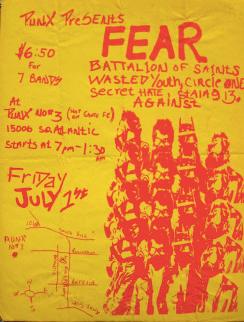 PUNX PRESENTS
FEAR
$6.50
FOR
7 BANDS
BATTALION OF SAINTS
WASTED YOUTH, CIRCLE ONE
SECRET HATE, STALAG 13,
AGAINST
AT
PUNX NO#3
15006 SO. ATLANTIC
STARTS AT 7PM-1:30
AM
FRIDAY
JULY 1ST
PUNX
NO 3